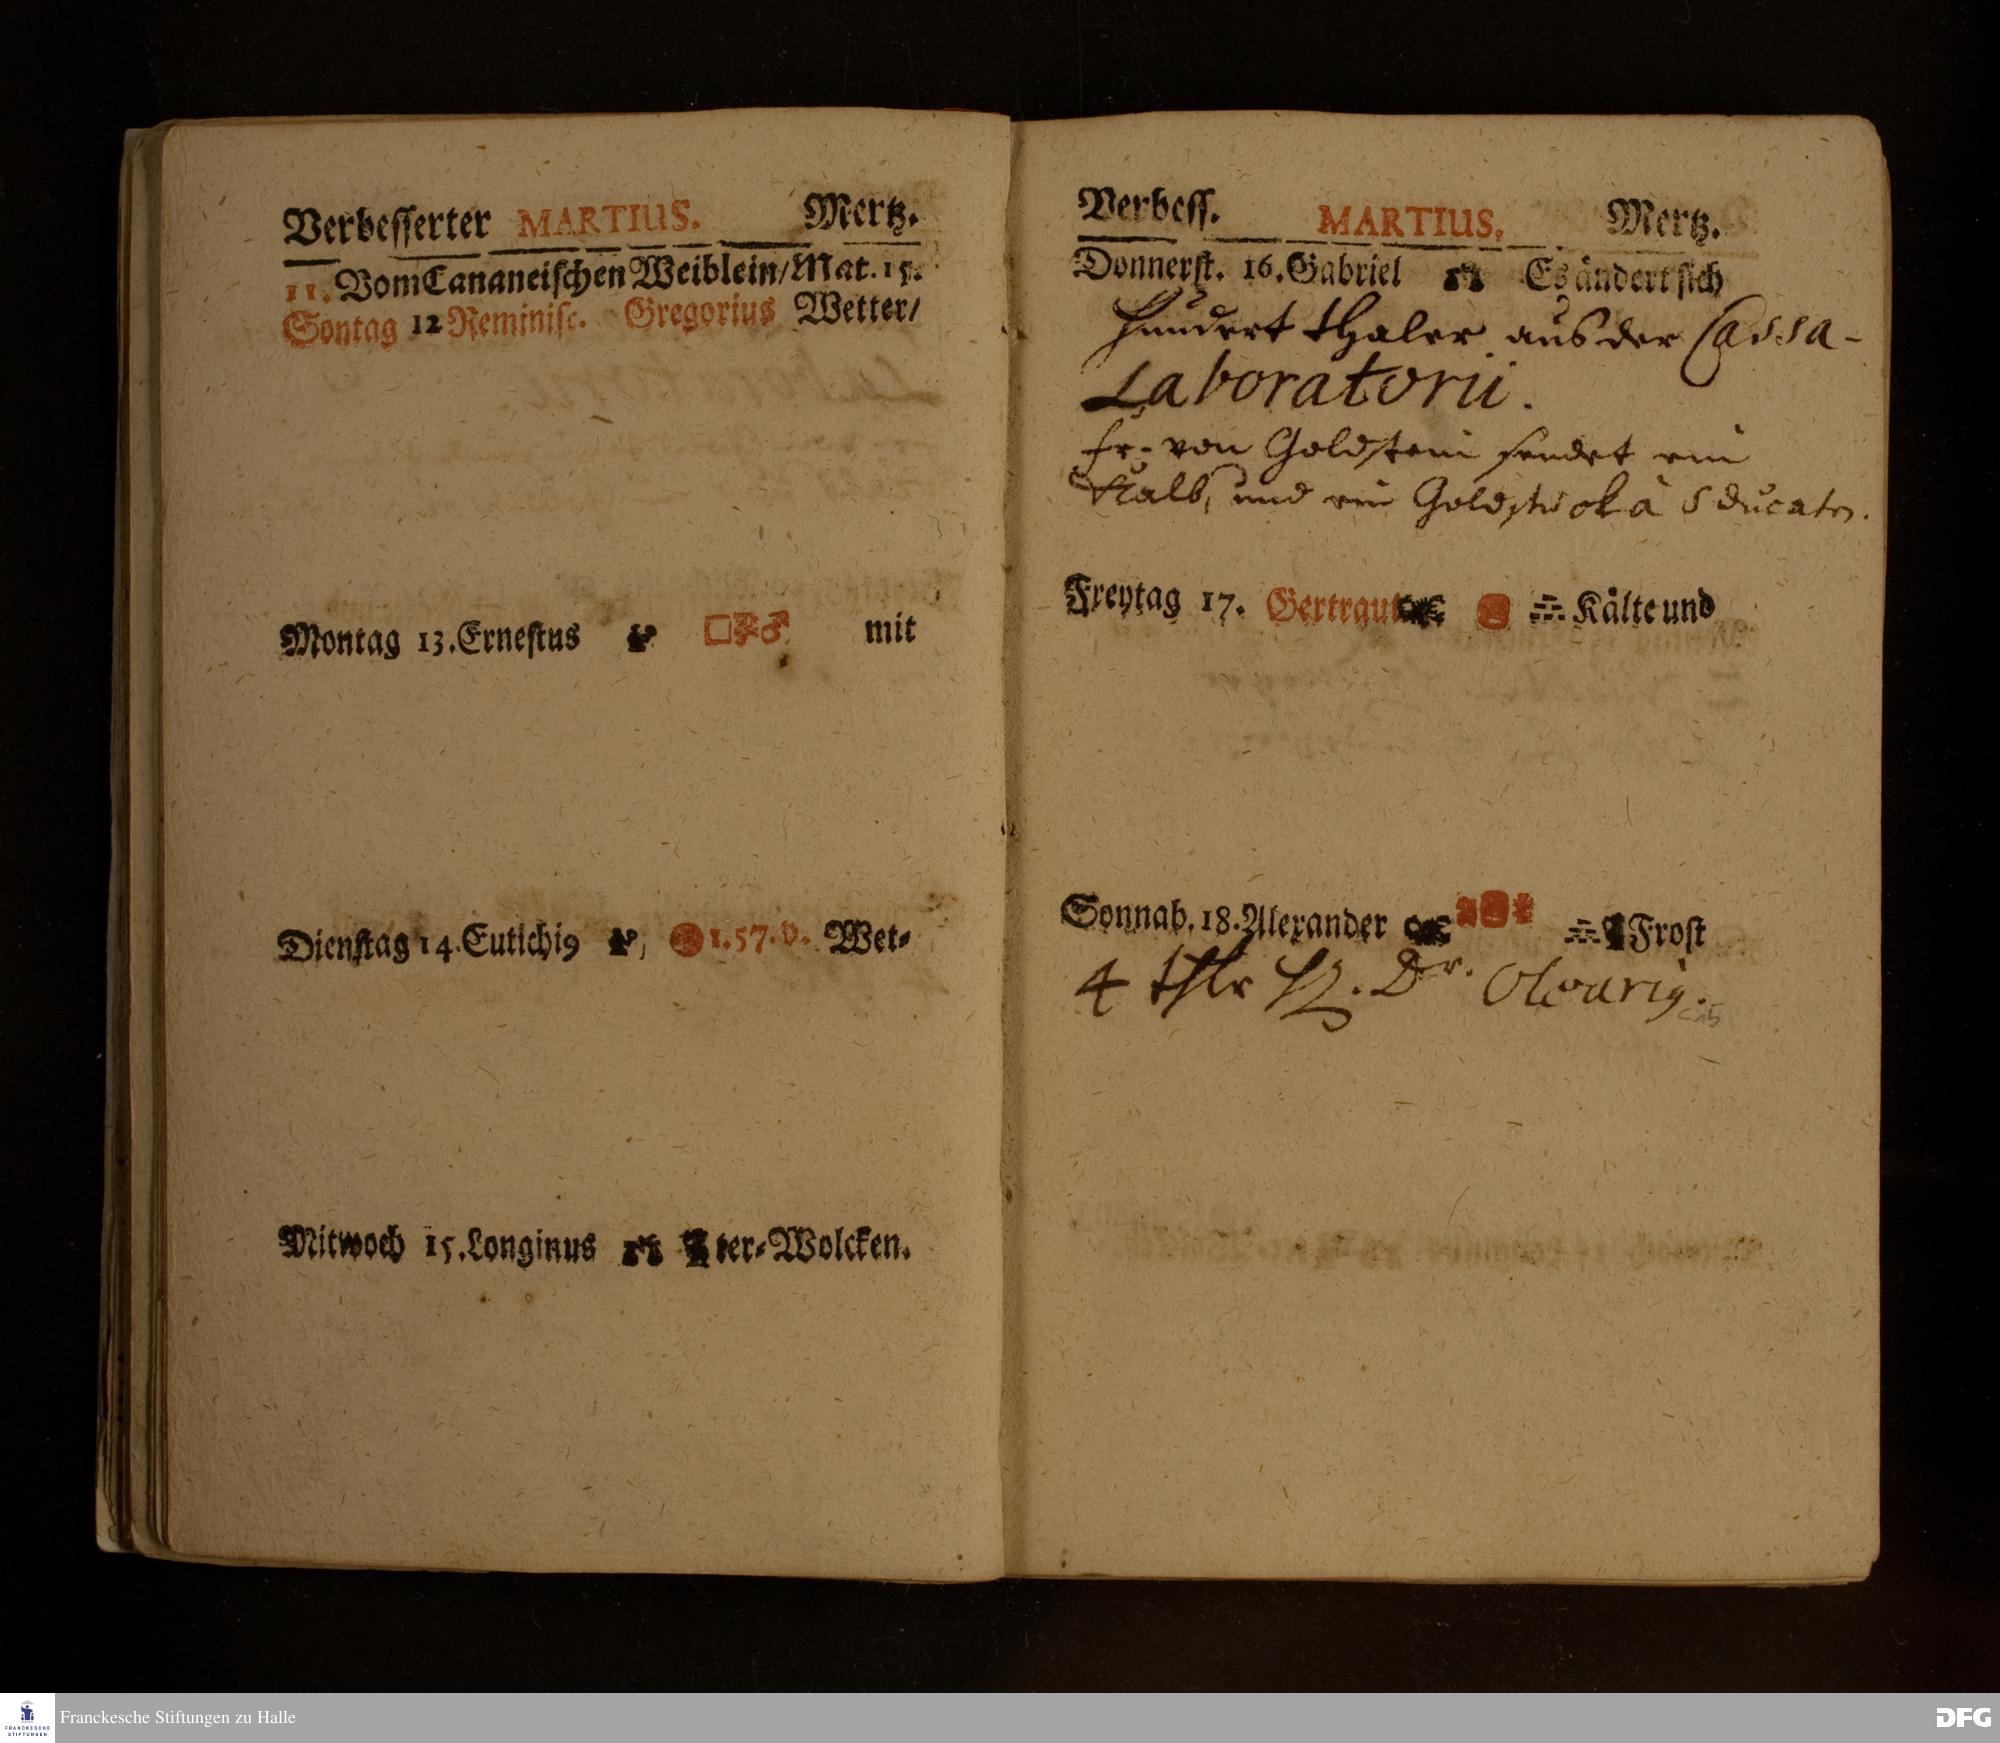 Verbesserter MARTIUS. Mertz.
11. Vom Cananeischen Weiblein/Mat. 15.
Sontag 12 Reminisc. Gregorius Wetter/
Montag 13. Ernestus □♂ mit
Dienstag 14. Eutichi9 1.57.v. Wet-
Mitwoch 15. Longinus ter-Wolcken.
Verbess. MARTIUS. Mertz.
Donnerst. 16. Gabriel Es ändert sich
Hundert thaler aus der Cassa-
Laboratorii.
Fr. von Goldstein sendet ein
Kalb, und ein Goldstück à ducaten.
Freytag 17. Gertraut Kälte und
Sonnab. 18. Alexander Frost
4 thlr H. Dr. Olearig.
Franckesche Stiftungen zu Halle
FRANCKESCHE
STIFTUNGEN
DFG